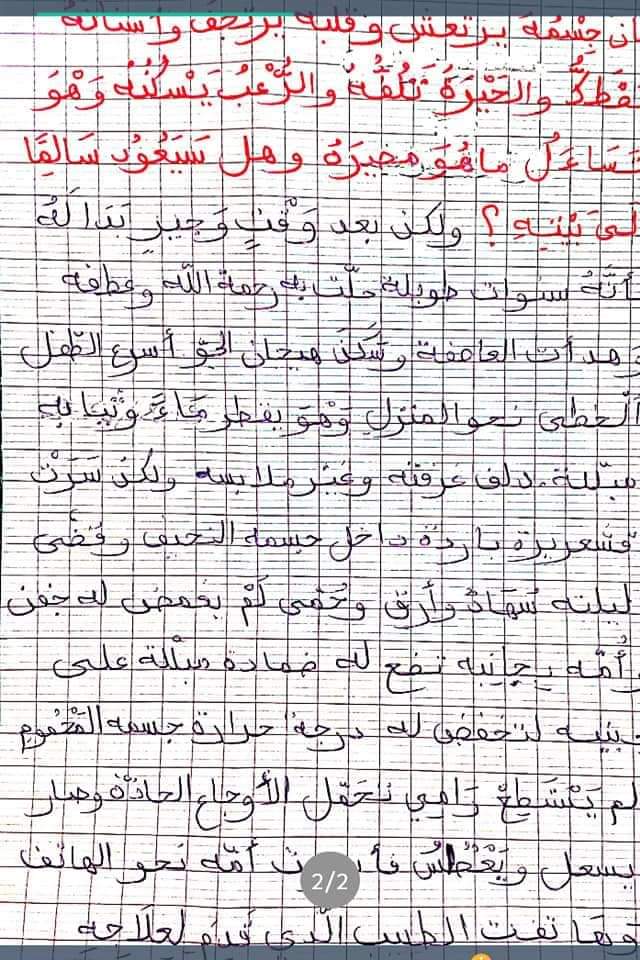 جِسْمُهُ يرتعش وقلبه يرتجف وأسنانه
والحَيْرَةُ تَلُفُّهُ والرُّعْبُ يَسْكُنُهُ وَهْوَ
ماهُوَ مصيرَهُ وهل سَيَعُودُ سَالِمًا
بَيْتِهِ ؟ ولكن بعد وَقْتٍ وَجِيزٍ بَدَا لَهُ
أَنَّهُ سنوات طويلة حلّت به رحمة الله وعطفه
وهدأت العاصفة وسَكَنَ هيجان الجوّ أسرع الطّفل
الْخطى نحو المنزل وَهْوَ يقطر مَاءً وثيابه
مبلّلة. دلف غرفته وغيّر ملابسه ولكن سَرَتْ
قشعريرة باردة داخل جسمه النحيف وقضَى
ليلته سُهَادٌ وأرق وحُمّى لَمْ يغمض له جفن
وأُمّه بِجانِبه تضع له ضمادة مبلّلة على
جبينه لتخفض له درجة حرارة جسمه المَحْمُومِ
لم يَسْتَطِعْ رَامِي تحَمّل الأوجاع الحادّة وصار
يسعل ويَعْطُسُ أمّه نحو الهاتف
وهاتفت الطبيب الّذي قَدِمَ لِعلَاجِهِ
2/2